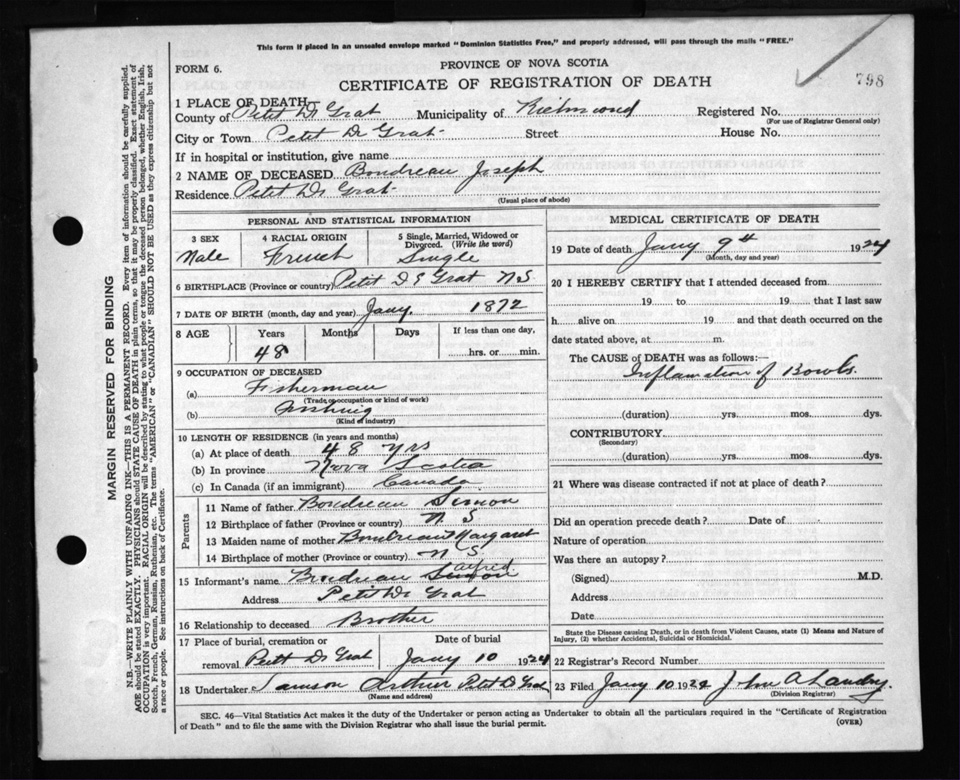 This form if placed in an unsealed envelope marked "Dominion Statistics Free," and properly addressed, will pass through the mails "FREE."
FORM 6.
PROVINCE OF NOVA SCOTIA
CERTIFICATE OF REGISTRATION OF DEATH
798
1 PLACE OF DEATH
County of Petit D Grat Municipality of Richmond Registered No.
(For use of Registrar General only)
City or Town Petit De Grat Street House No.
If in hospital or institution, give name
2 NAME OF DECEASED Boudreau Joseph
Residence Petit De Grat
(Usual place of abode)
PERSONAL AND STATISTICAL INFORMATION
3 SEX 4 RACIAL ORIGIN 5 Single, Married, Widowed or Divorced. (Write the word)
Male French Single
6 BIRTHPLACE (Province or country) Petit D E Grat N S
7 DATE OF BIRTH (month, day and year) Jany. 1872
8 AGE Years Months Days If less than one day,
48 hrs. or min.
9 OCCUPATION OF DECEASED
(a) Fisherman
(Trade or occupation or kind of work)
(b) Fishing
(Kind of industry)
10 LENGTH OF RESIDENCE (in years and months)
(a) At place of death 48 yrs
(b) In province Nova Scotia
(c) In Canada (if an immigrant) Canada
Parents
11 Name of father Boudreau Simon
12 Birthplace of father (Province or country) N S
13 Maiden name of mother Boudreau Margaret
14 Birthplace of mother (Province or country) N S
15 Informant's name Boudreau Simon alfred
Address Petit De Grat
16 Relationship to deceased Brother
17 Place of burial, cremation or Date of burial
removal Petit De Grat Jany 10 1924
18 Undertaker Samson Arthur Petit D Grat
(Name and address)
MEDICAL CERTIFICATE OF DEATH
19 Date of death Jany 9th 1924
(Month, day and year)
20 I HEREBY CERTIFY that I attended deceased from
19 to 19 that I last saw
h alive on 19 and that death occurred on the
date stated above, at m.
The CAUSE of DEATH was as follows:—
Inflamation of Bowls.
(duration) yrs. mos. dys.
CONTRIBUTORY
(Secondary)
(duration) yrs. mos. dys.
21 Where was disease contracted if not at place of death?
Did an operation precede death? Date of
Nature of operation
Was there an autopsy?
(Signed) M.D.
Address
Date
State the Disease causing Death, or in death from Violent Causes, state (1) Means and Nature of
Injury, (2) whether Accidental, Suicidal or Homicidal.
22 Registrar's Record Number
23 Filed Jany 10 1924 John A Landry.
(Division Registrar)
SEC. 46—Vital Statistics Act makes it the duty of the Undertaker or person acting as Undertaker to obtain all the particulars required in the "Certificate of Registration
of Death" and to file the same with the Division Registrar who shall issue the burial permit.
(OVER)
MARGIN RESERVED FOR BINDING
N.B.—WRITE PLAINLY WITH UNFADING INK—THIS IS A PERMANENT RECORD. Every item of information should be carefully supplied.
AGE should be stated EXACTLY. PHYSICIANS should STATE CAUSE OF DEATH in plain terms, so that it may be properly classified. Exact statement of
OCCUPATION is very important. RACIAL ORIGIN will be described by stating to what people or tongue the deceased person belonged, whether English, Irish,
Scotch, French, German, Russian, Ruthenian, etc. The terms "AMERICAN" or "CANADIAN" SHOULD NOT BE USED as they express citizenship but not
a race or people. See instructions on back of Certificate.